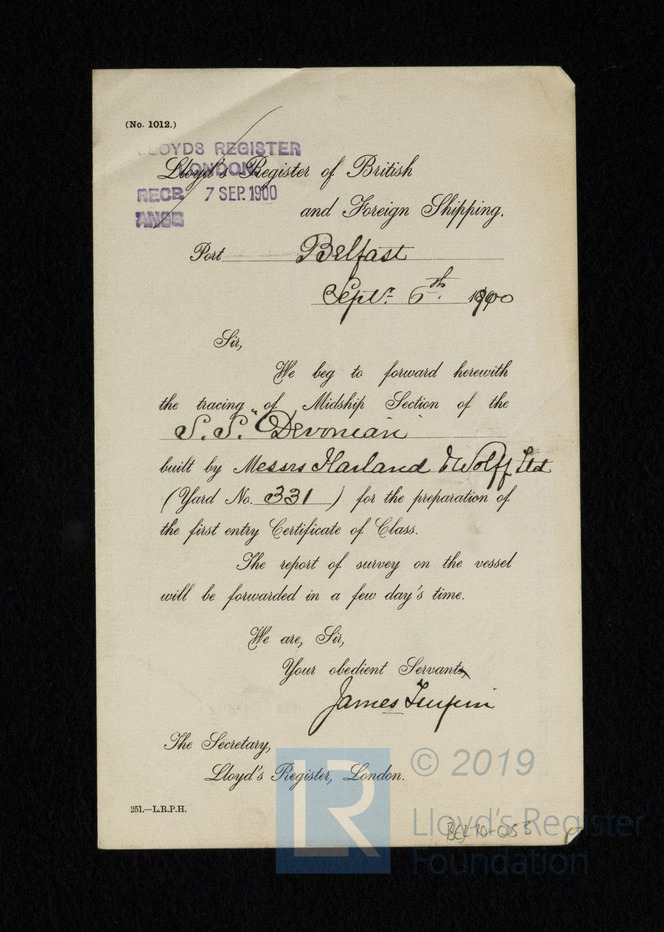 (No. 1012.)
LLOYDS REGISTER
LONDON
RECD. 7 SEP. 1900
ANSD
Lloyd's Register of British
and Foreign Shipping.
Port Belfast
Septr. 6th 1900
Sir,
We beg to forward herewith
the tracing of Midship Section of the
S.S. "Devonian
built by Messrs Harland & Wolff Ltd
(Yard No. 331) for the preparation of
the first entry Certificate of Class.
The report of survey on the vessel
will be forwarded in a few day's time.
We are, Sir,
Your obedient Servant,
James Turpin
The Secretary,
Lloyd's Register, London.
251.—L.R.P.H.
LR
© 2019
Lloyd's Register
Foundation